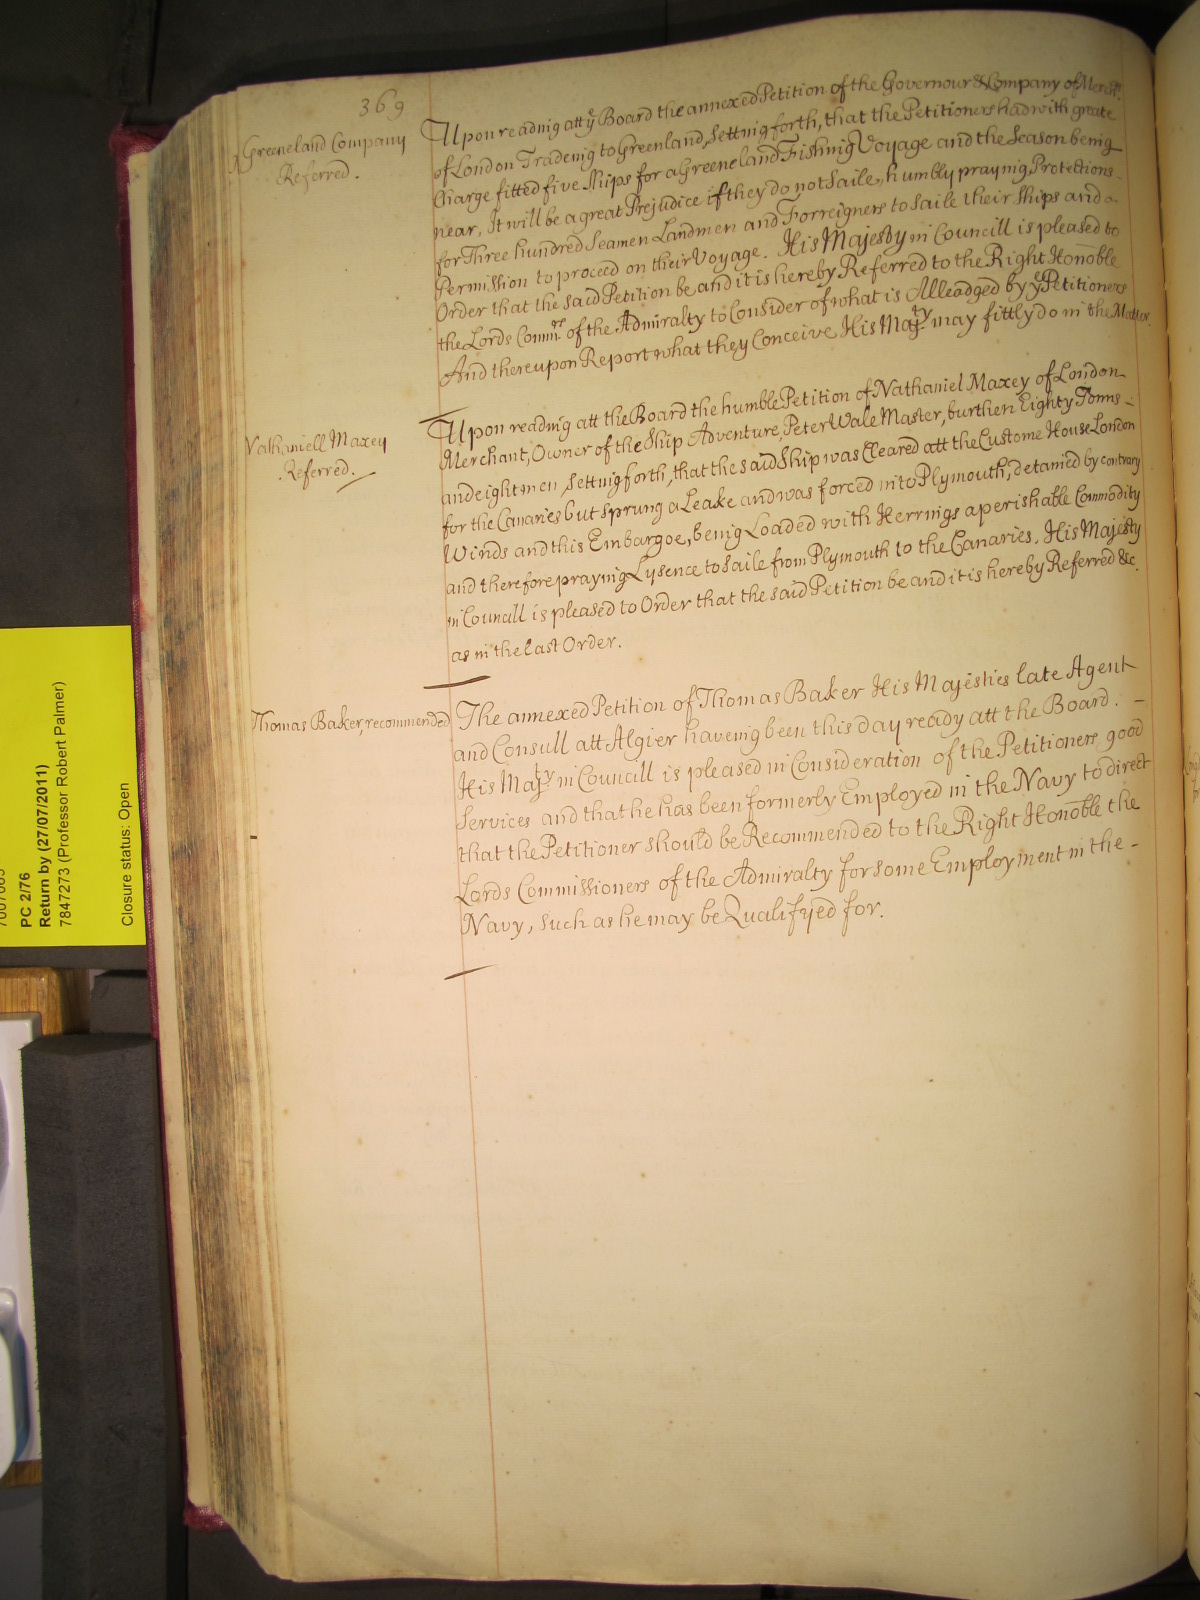 369
Greeneland Company
Referred.
Upon reading att ye Board the annexed Petition of the Governour & Company of Mercht.
of London Tradeing to Greenland, Setting forth, that the Petitioners had with greate
Charge fitted five Ships for a Greeneland Fishing Voyage and the Season being
near, It will be a great Prejudice if they do not Saile, humbly praying Protections
for Three hundred Seamen Landmen and Forreigners to Saile their Ships and a
Permission to proceed on their Voyage. His Majesty in Councill is pleased to
Order that the said Petition be and it is hereby Referred to the Right Honoble
the Lords Commrs. of the Admiralty to Consider of what is Alleadged by ye Petitioners
And thereupon Report what they Conceive His Maty. may fittly do in the Matter.
Nathaniell Maxey
Referred.
Upon reading att the Board the humble Petition of Nathaniel Maxey of London
Merchant, Owner of the Ship Adventure, Peter Wale Master, burthen Eighty Tonns -
and eight men, Setting forth, that the said Ship was Cleared att the Custome House London
for the Canaries but Sprung a Leake and was forced into Plymouth, detained by contrary
Winds and this Embargoe, being Loaded with Herrings a perishable Commodity
and therefore praying Lysence to Saile from Plymouth to the Canaries. His Majesty
in Councill is pleased to Order that the said Petition be and it is hereby Referred &c.
as in the last Order.
Thomas Baker, recommended
The annexed Petition of Thomas Baker His Majesties late Agent
and Consull att Algier haveing been this day ready att the Board. -
His Maty. in Councill is pleased in Consideration of the Petitioners good
Services and that he has been formerly Employed in the Navy to direct
that the Petitioner should be Recommended to the Right Honoble the
Lords Commissioners of the Admiralty for some Employment in the -
Navy, such as he may be Qualifyed for.
PC 2/76
Return by (27/07/2011)
7847273 (Professor Robert Palmer)
Closure status: Open